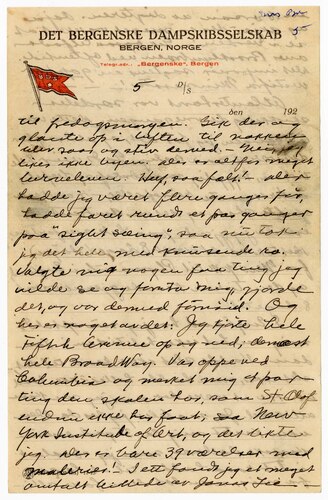 5
DET BERGENSKE DAMPSKIBSSELSKAB
BERGEN, NORGE
Telegr.adr.: „Bergenske“ Bergen
5 D/S
den 192
til fredagsmorgen. Gik der og
glaante op i luften til nakken
var saar og stiv dermed. — Nei, jeg
likes ikke byen. Der er altfor meget
Uf, saa fælt! Der
hadde jeg været flere ganger før,
hadde faret rundt et par ganger
paa "sight seeing", saa nu tok
jeg det hele med knusende ro.
Valgte mig nogen faa ting jeg
vilde se og forstaa mig, gjorde
det, og var dermed fornøid. Og
her er noget av det: Jeg kjørte hele
Fifth Avenue op og ned; dernæst
hele BroadWay. Var oppe ved
Columbia og merket mig et par
ting den skolen har, som St Olaf
endnu ikke har faat; saa New
York Institute of Art, og det likte
jeg. Der er bare 39 værelser med
malerier! I ett fandt jeg et meget
omtalt billede av Jonas Lie —